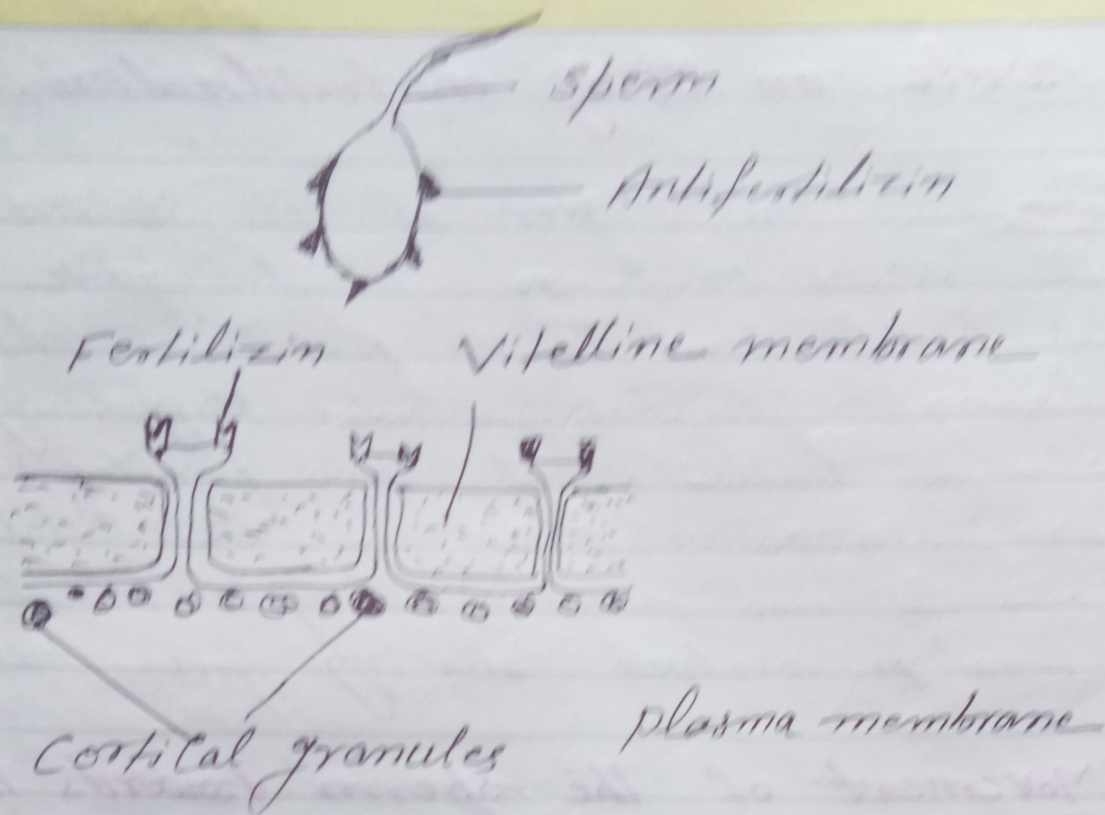 Sperm
Antifertilizin
Fertilizin Vitelline membrane
Cortical granules
plasma membrane